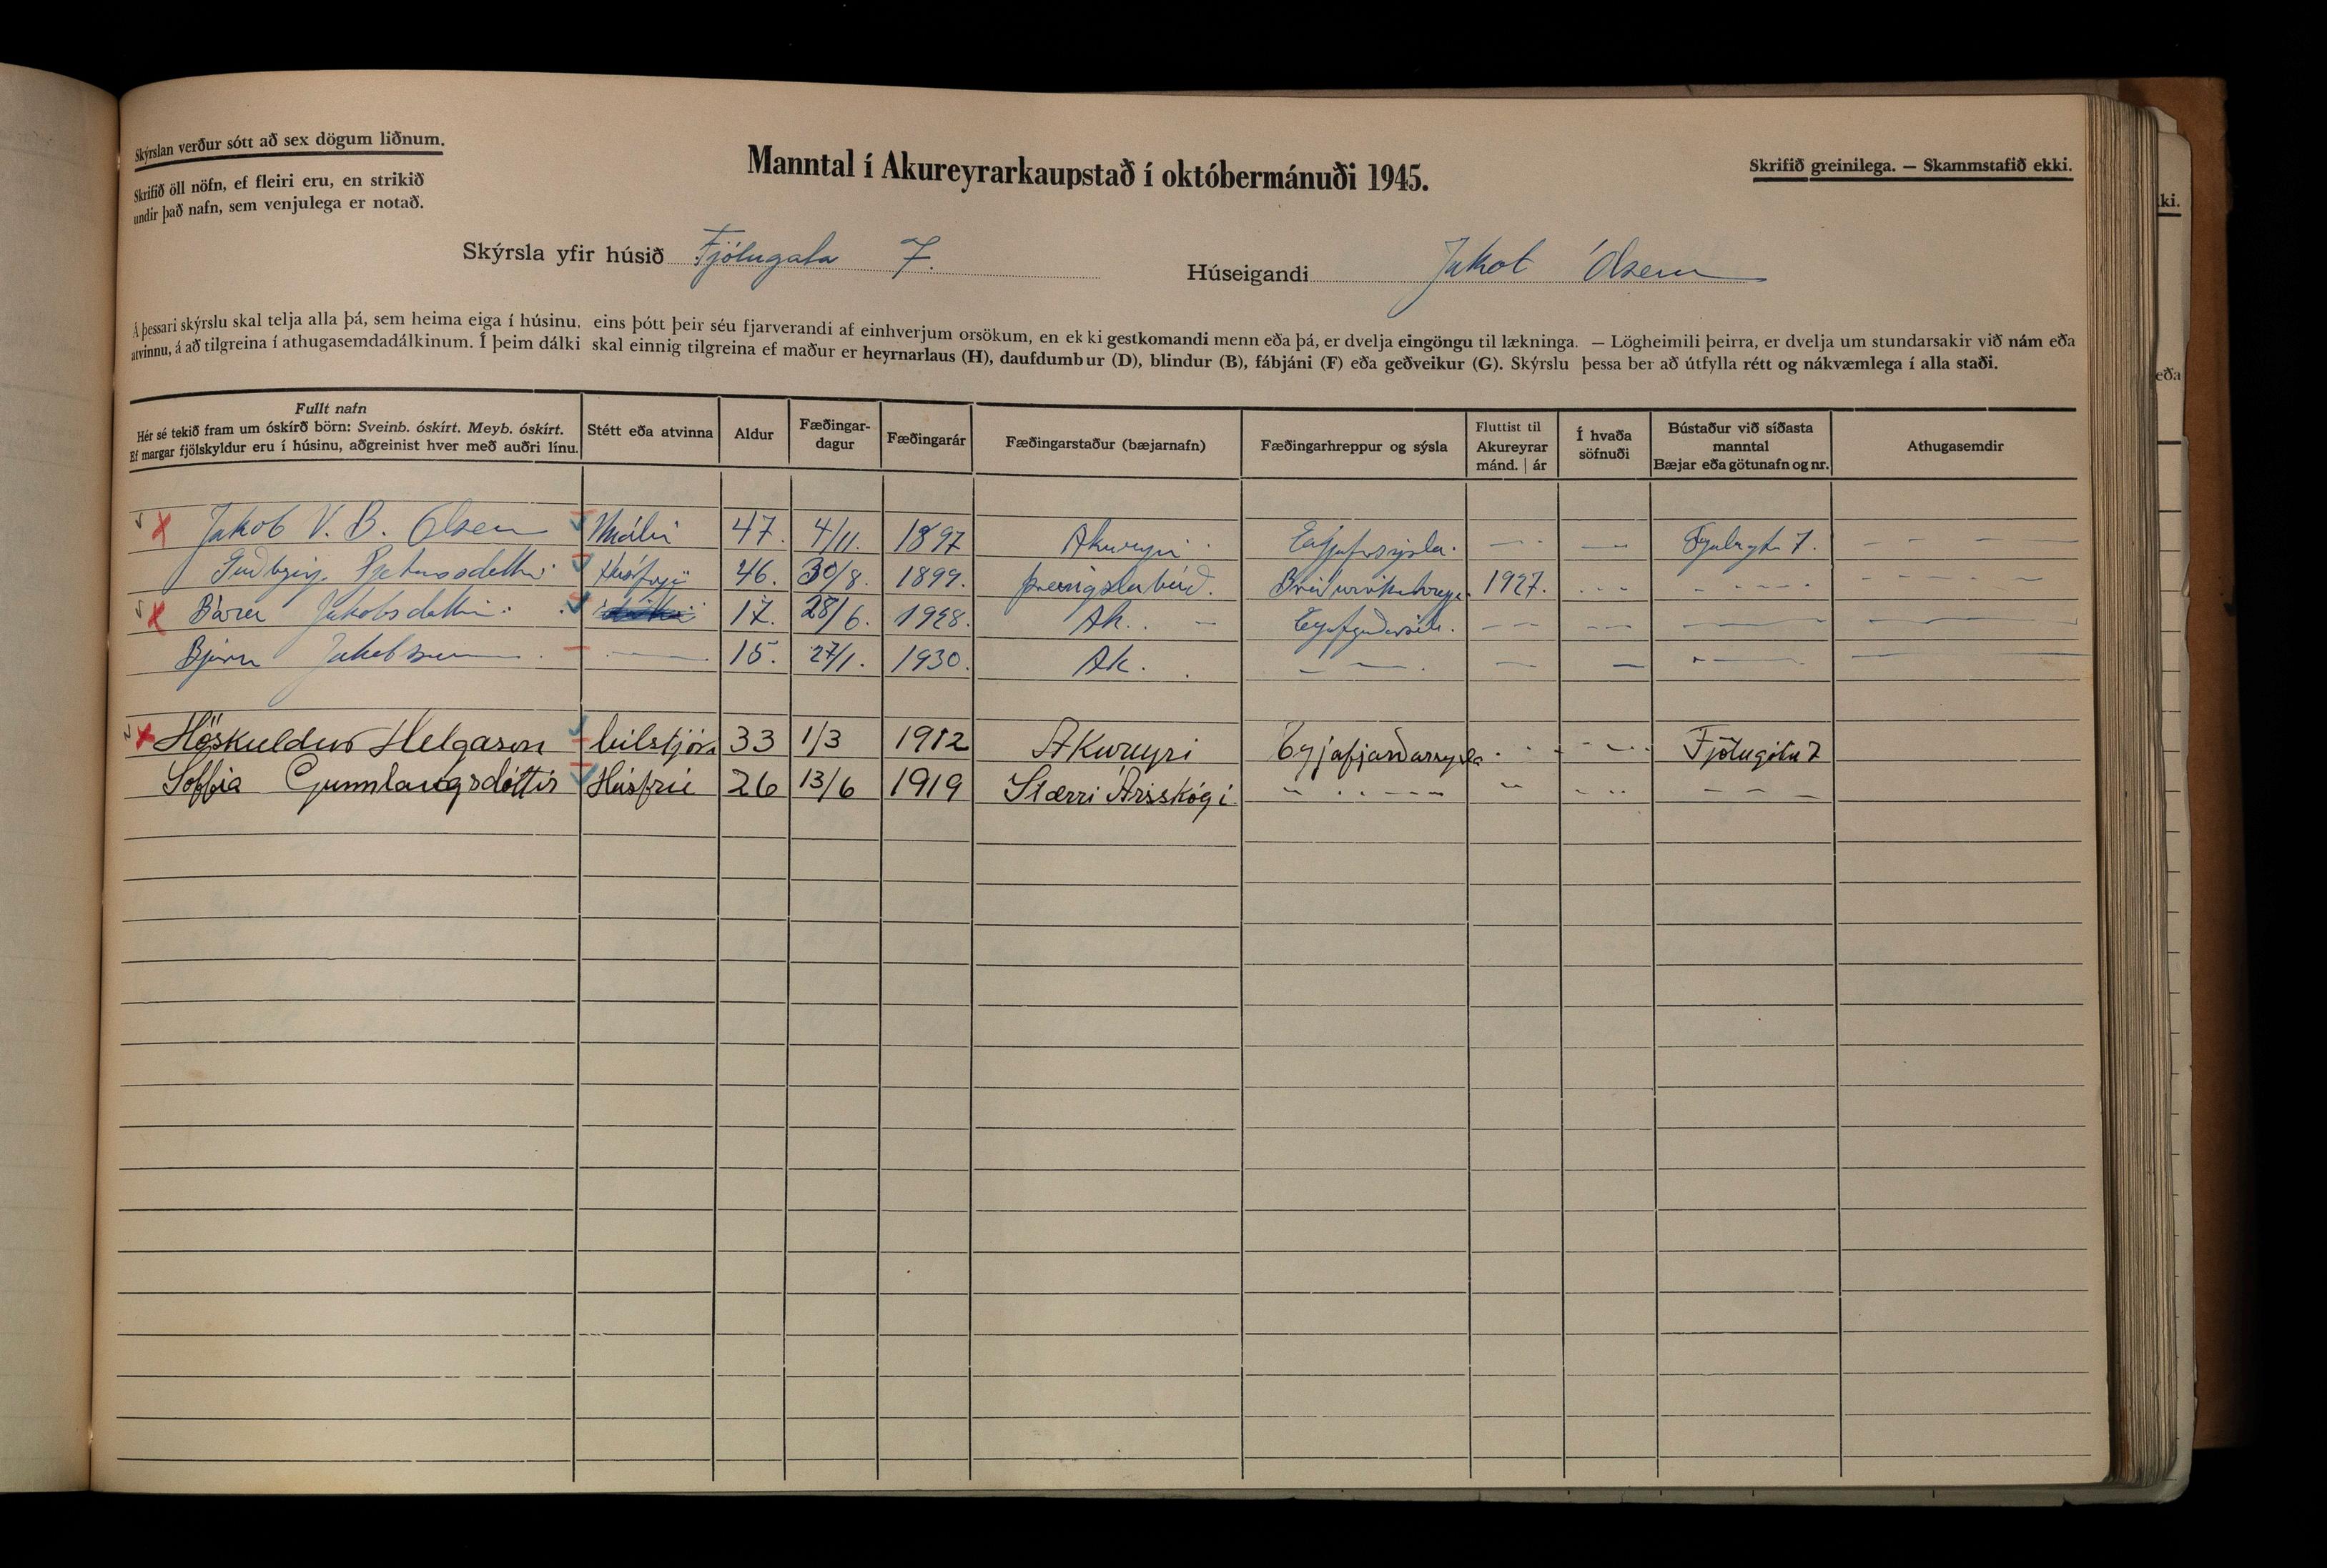 Skýrslan verður sótt að sex dögum liðnum.
Skrifið öll nöfn, ef fleiri eru, en strikið
undir það nafn, sem venjulega er notað.
Manntal í Akureyrarkaupstað í októbermánuði 1945.
Skrifið greinilega. — Skammstafið ekki.
ki.
Skýrsla yfir húsið Fjólugata 7.
Húseigandi Jakob Ólsen
Á þessari skýrslu skal telja alla þá, sem heima eiga í húsinu, eins þótt þeir séu fjarverandi af einhverjum orsökum, en ekki gestkomandi menn eða þá, er dvelja eingöngu til lækninga. — Lögheimili þeirra, er dvelja um stundarsakir við nám eða
atvinnu, á að tilgreina í athugasemdadálkinum. Í þeim dálki skal einnig tilgreina ef maður er heyrnarlaus (H), daufdumbur (D), blindur (B), fábjáni (F) eða geðveikur (G). Skýrslu þessa ber að útfylla rétt og nákvæmlega í alla staði.
eða
Fullt nafn
Hér sé tekið fram um óskírð börn: Sveinb. óskírt. Meyb. óskírt.
Ef margar fjölskyldur eru í húsinu, aðgreinist hver með auðri línu.
Stétt eða atvinna
Aldur
Fæðingar-
dagur
Fæðingarár
Fæðingarstaður (bæjarnafn)
Fæðingarhreppur og sýsla
Fluttist til
Akureyrar
mánd. | ár
Í hvaða
söfnuði
Bústaður við síðasta
manntal
Bæjar eða götunafn og nr.
Athugasemdir
Jakob V. B. Olsen Málari 47. 4/11. 1897 Akureyri Eyjafjs.sýsla. — — — 7. — — — —
Guðbjörg Pjetursdóttir Húsfrú 46. 30/8. 1899. 1927.
Bára Jakobsdóttir. 17. 28/6. 1928. Ak. — — — — —
Björn Jakobsson — 15. 27/1. 1930. Ak. — — — — — —
Höskuldur Helgason bílstjóri 33 1/3 1912 Akureyri Eyjafjarðarsýsla - - - Fjólugötu 7
Soffía Gunnlaugsdóttir Húsfrú 26 13/6 1919 Stærri Árskógi - - - - - -